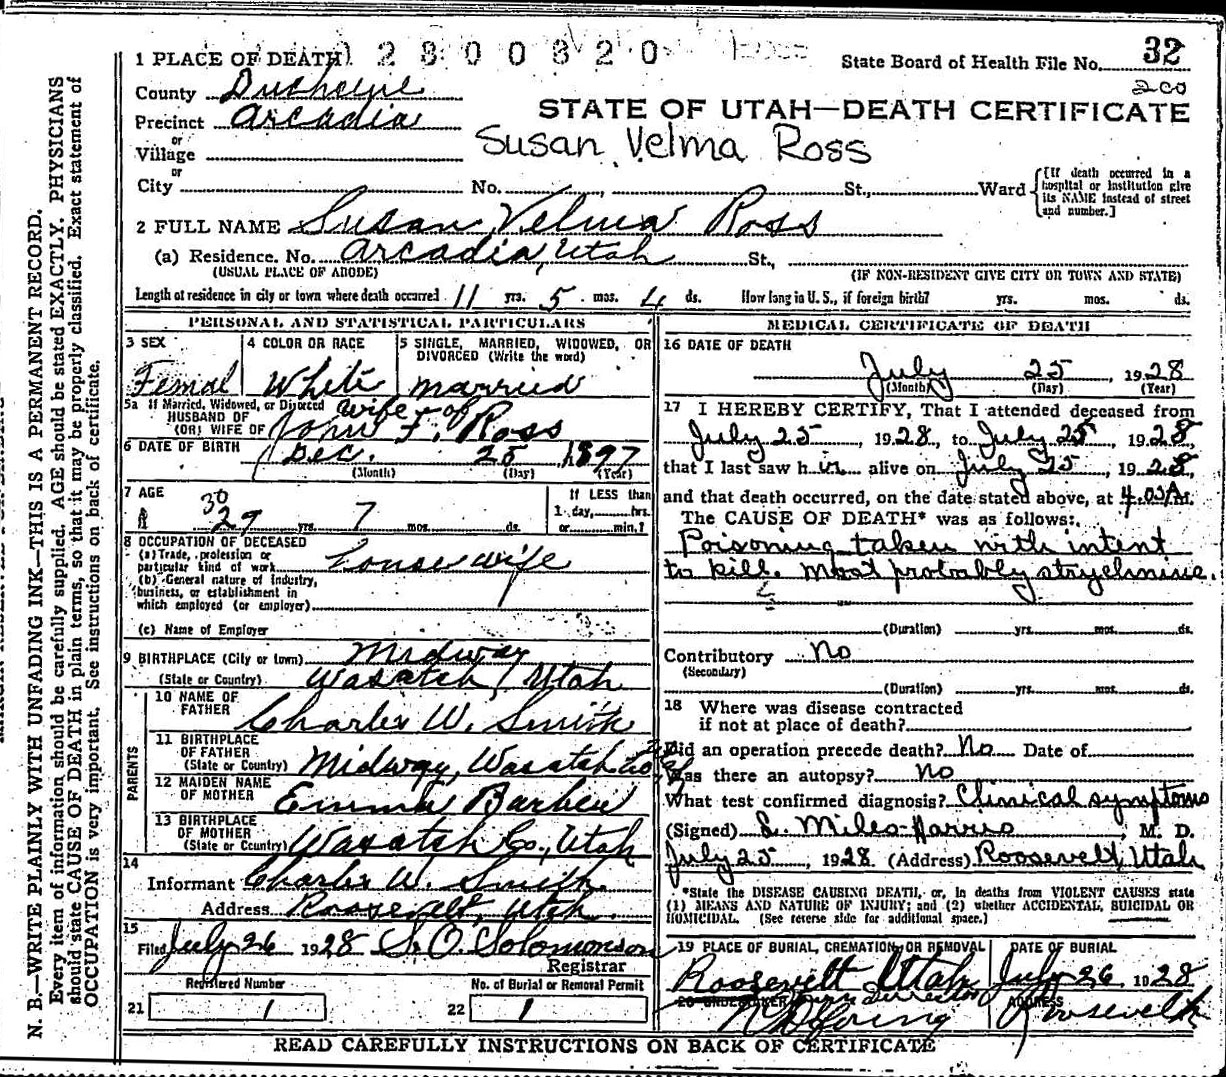 1 PLACE OF DEATH 2 8 0 0 8 2 0 State Board of Health File No. 32
200
County Duchesne
Precinct Arcadia
STATE OF UTAH—DEATH CERTIFICATE
or
Village
Susan Velma Ross
or
City No. , St., Ward
[If death occurred in a hospital or institution give its NAME instead of street and number.]
2 FULL NAME Susan Velma Ross
(a) Residence. No. Arcadia, Utah St.,
(USUAL PLACE OF ABODE) (IF NON-RESIDENT GIVE CITY OR TOWN AND STATE)
Length of residence in city or town where death occurred 11 yrs. 5 mos. 4 ds. How long in U. S., if foreign birth? yrs. mos. ds.
PERSONAL AND STATISTICAL PARTICULARS
3 SEX
Femal
4 COLOR OR RACE
White
5 SINGLE, MARRIED, WIDOWED, OR DIVORCED (Write the word)
married
5a If Married, Widowed, or Divorced
HUSBAND OF
(OR) WIFE OF
wife of
John F. Ross
6 DATE OF BIRTH Dec. 25 1897
(Month) (Day) (Year)
7 AGE
30
29 yrs. 7 mos. ds.
If LESS than
1 day, hrs.
or min.?
8 OCCUPATION OF DECEASED
(a) Trade, profession or
particular kind of work Housewife
(b) General nature of industry,
business, or establishment in
which employed (or employer)
(c) Name of Employer
9 BIRTHPLACE (City or town) Midway
(State or Country) Wasatch, Utah
PARENTS
10 NAME OF
FATHER
Charles W. Smith
11 BIRTHPLACE
OF FATHER
(State or Country) Midway, Wasatch Co
12 MAIDEN NAME
OF MOTHER Emma Barben
13 BIRTHPLACE
OF MOTHER
(State or Country) Wasatch Co., Utah
14
Informant Charles W. Smith.
Address Roosevelt, Utah.
15
Filed July 26 1928 S. O. Solomonson
Registrar
Registered Number
21 1
No. of Burial or Removal Permit
22 1
MEDICAL CERTIFICATE OF DEATH
16 DATE OF DEATH
July 25, 1928
(Month) (Day) (Year)
17 I HEREBY CERTIFY, That I attended deceased from
July 25, 1928, to July 25, 1928,
that I last saw her alive on July 25, 1928,
and that death occurred, on the date stated above, at 4.05A M.
The CAUSE OF DEATH* was as follows:
Poisoning taken with intent
to kill. Most probably strychnine.
(Duration) yrs. mos. ds.
Contributory No
(Secondary)
(Duration) yrs. mos. ds.
18 Where was disease contracted
if not at place of death?
Did an operation precede death? No Date of
Was there an autopsy? No
What test confirmed diagnosis? Clinical symptoms
(Signed) L. Miles Harris, M. D.
July 25, 1928 (Address) Roosevelt, Utah
*State the DISEASE CAUSING DEATH, or, in deaths from VIOLENT CAUSES state
(1) MEANS AND NATURE OF INJURY; and (2) whether ACCIDENTAL, SUICIDAL OR
HOMICIDAL. (See reverse side for additional space.)
19 PLACE OF BURIAL, CREMATION OR REMOVAL
Roosevelt Utah
DATE OF BURIAL
July 26 1928
20 UNDERTAKER Director
ADDRESS
Roosevelt
READ CAREFULLY INSTRUCTIONS ON BACK OF CERTIFICATE
N. B.—WRITE PLAINLY WITH UNFADING INK—THIS IS A PERMANENT RECORD.
Every item of information should be carefully supplied. AGE should be stated EXACTLY. PHYSICIANS
should state CAUSE OF DEATH in plain terms, so that it may be properly classified. Exact statement of
OCCUPATION is very important. See instructions on back of certificate.